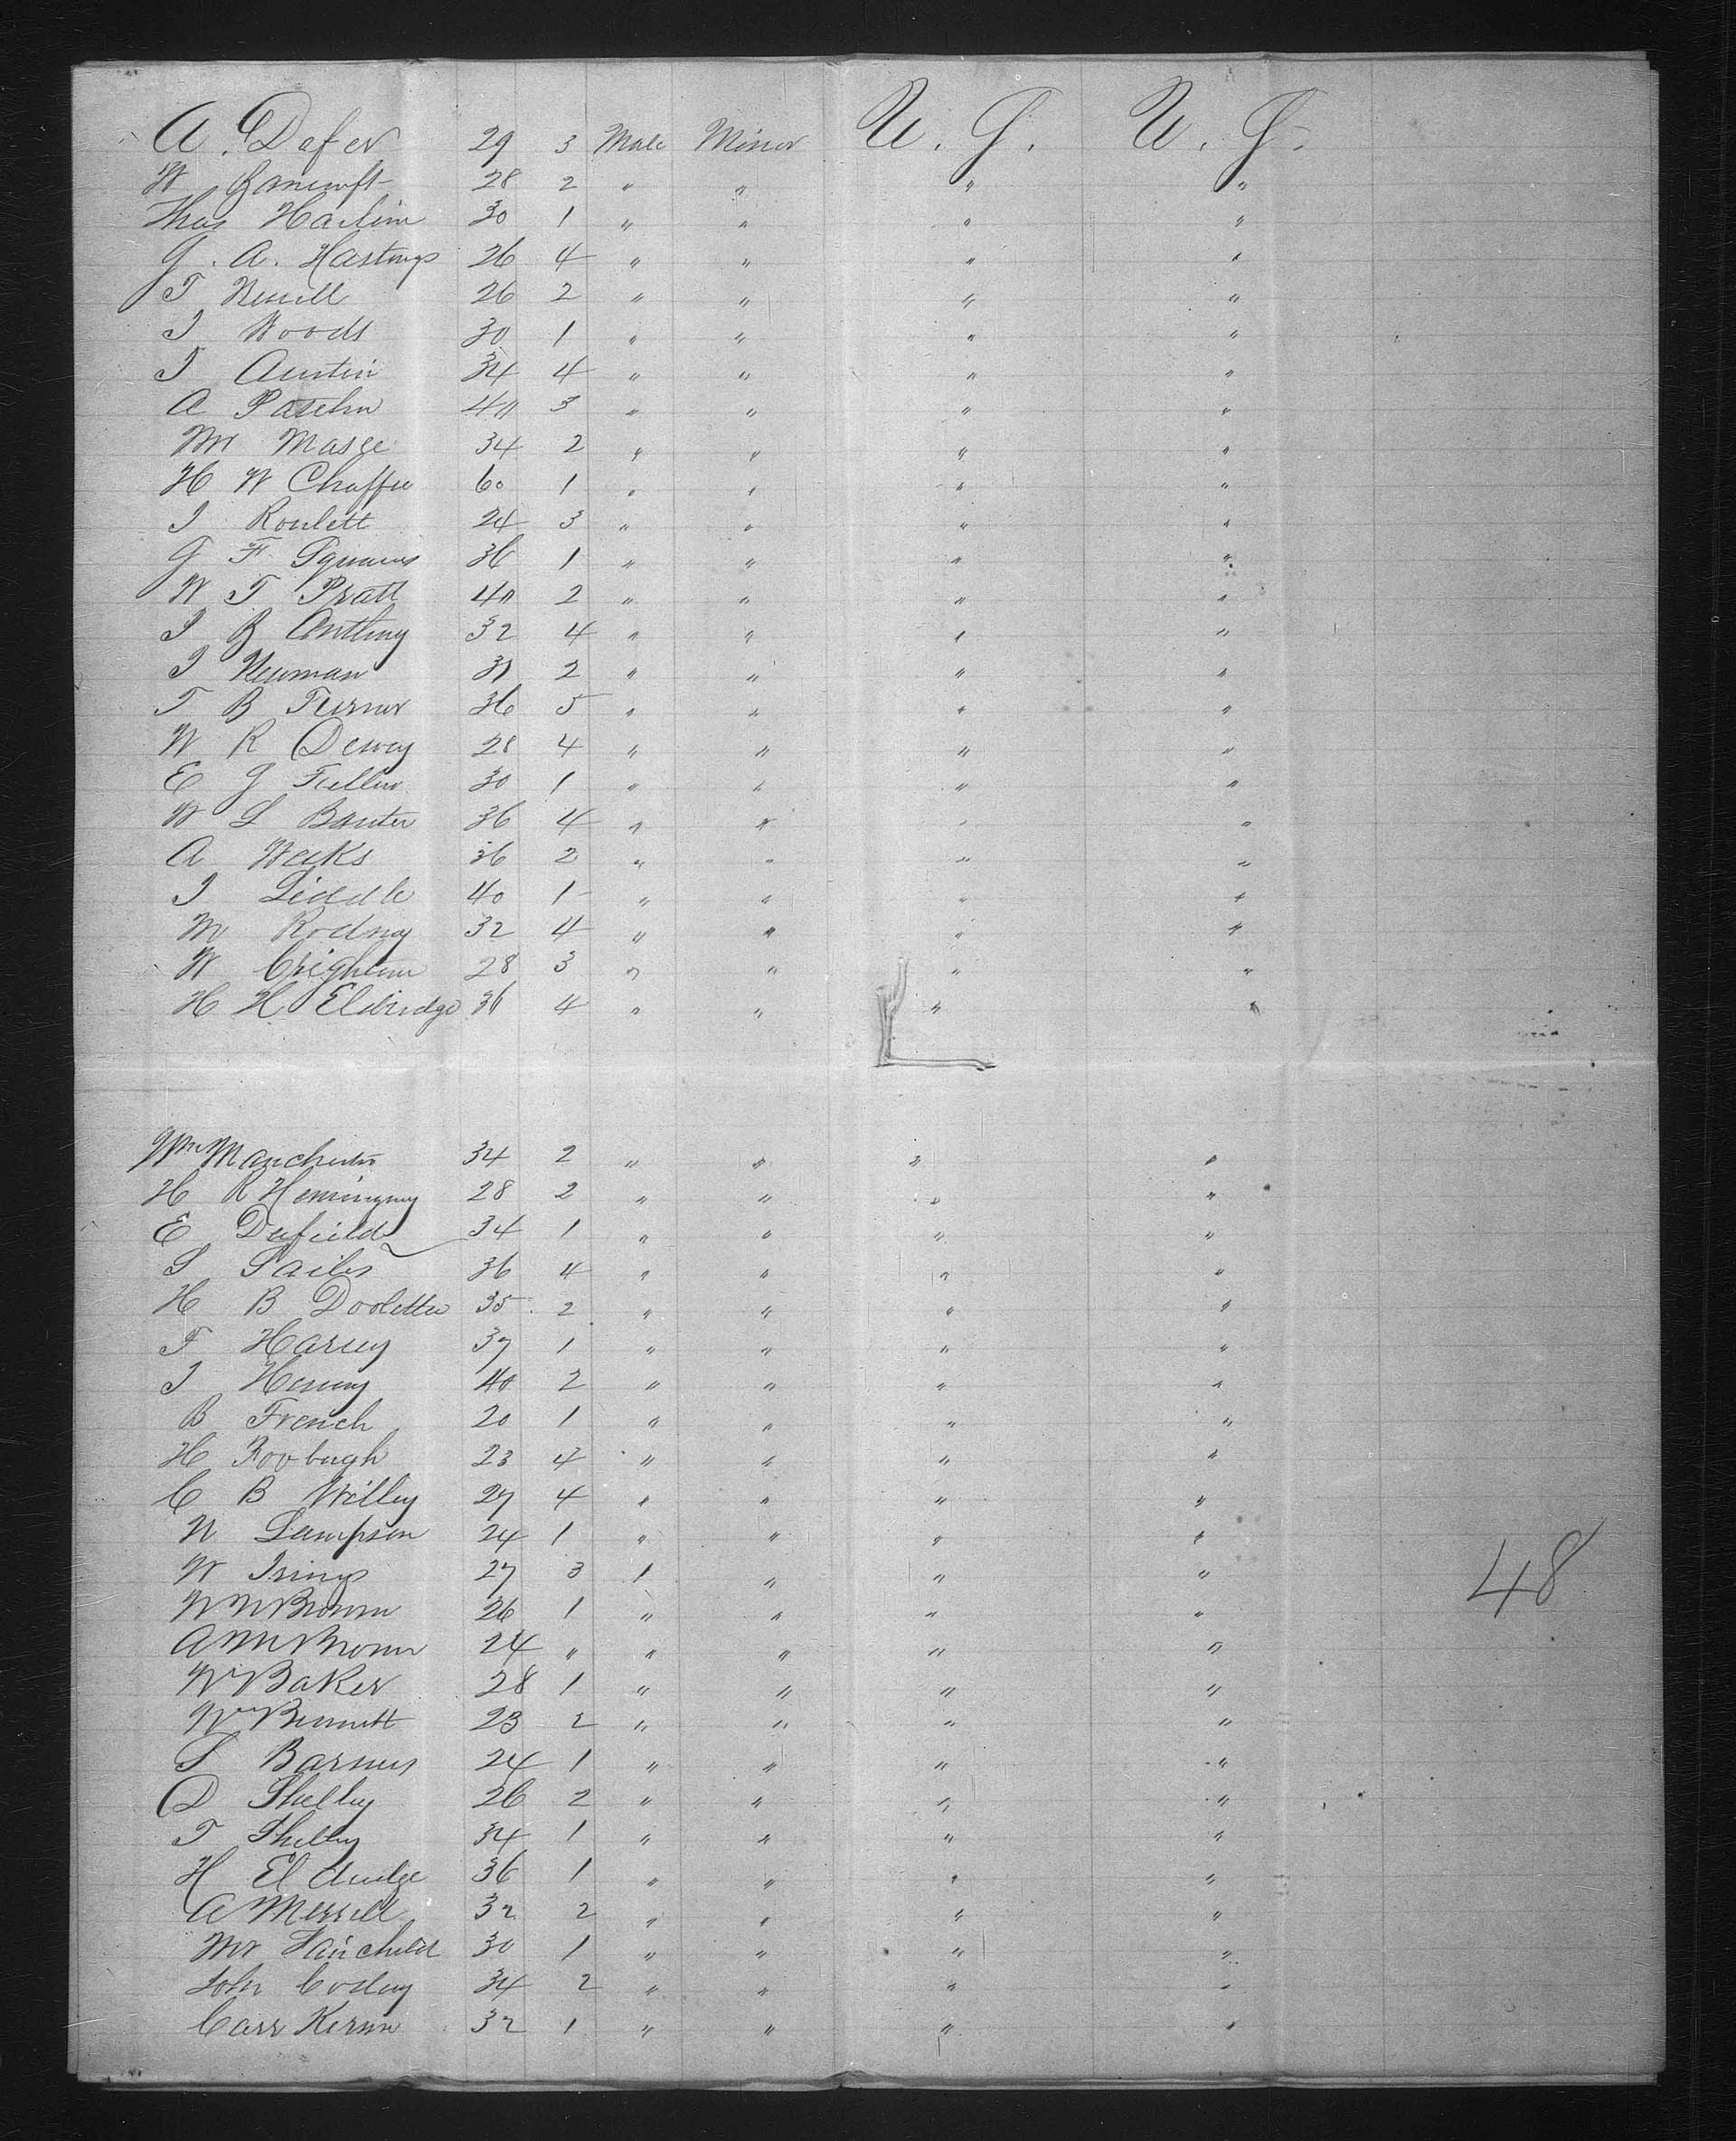 A. Defer 29 3 Male Minor U. S. U. S.
W Bancroft 28 2 " " " "
Thos Harlin 30 1 " " " "
G. A. Hastings 26 4 " " " "
T Newell 26 2 " " " "
J Woods 30 1 " " " "
J Austin 34 4 " " " "
A 40 3 " " " "
Mr Masee 34 2 " " " "
H W Chaffee 60 1 " " " "
J Roulett 24 3 " " " "
G F Squares 36 1 " " " "
W T Pratt 40 2 " " " "
J B Anthony 32 4 " " " "
J Newman 31 2 " " " "
T B Turner 36 5 " " " "
W R Dewey 28 4 " " " "
E G Fuller 30 1 " " " "
W S Baxter 36 4 " " " "
A Weeks 36 2 " " " "
J Liddle 40 1 " " " "
M Rodney 32 4 " " " "
W Crighton 28 3 " " " "
H H Eldridge 36 4 " " " "
Wm Manchester 34 2 " " " "
H R Hemingway 28 2 " " " "
E Dufield 34 1 " " " "
S Sailes 36 4 " " " "
H B Doolettle 35 2 " " " "
F Harvey 37 1 " " " "
J Henery 40 2 " " " "
B French 20 1 " " " "
H Roobugh 23 4 " " " "
C B Willey 27 4 " " " "
N Sampson 24 1 " " " "
W Irings 27 3 " " " "
W W Brown 26 1 " " " "
A M Brown 24 " " " " "
W Baker 28 1 " " " "
Wm Bennett 23 2 " " " "
S Barnes 24 1 " " " "
D Shelley 26 2 " " " "
T Shelley 34 1 " " " "
H Eldridge 36 1 " " " "
A Merrill 32 2 " " " "
Mr Fairchild 30 1 " " " "
John Codey 34 2 " " " "
Carr Kernn 32 1 " " " "
48